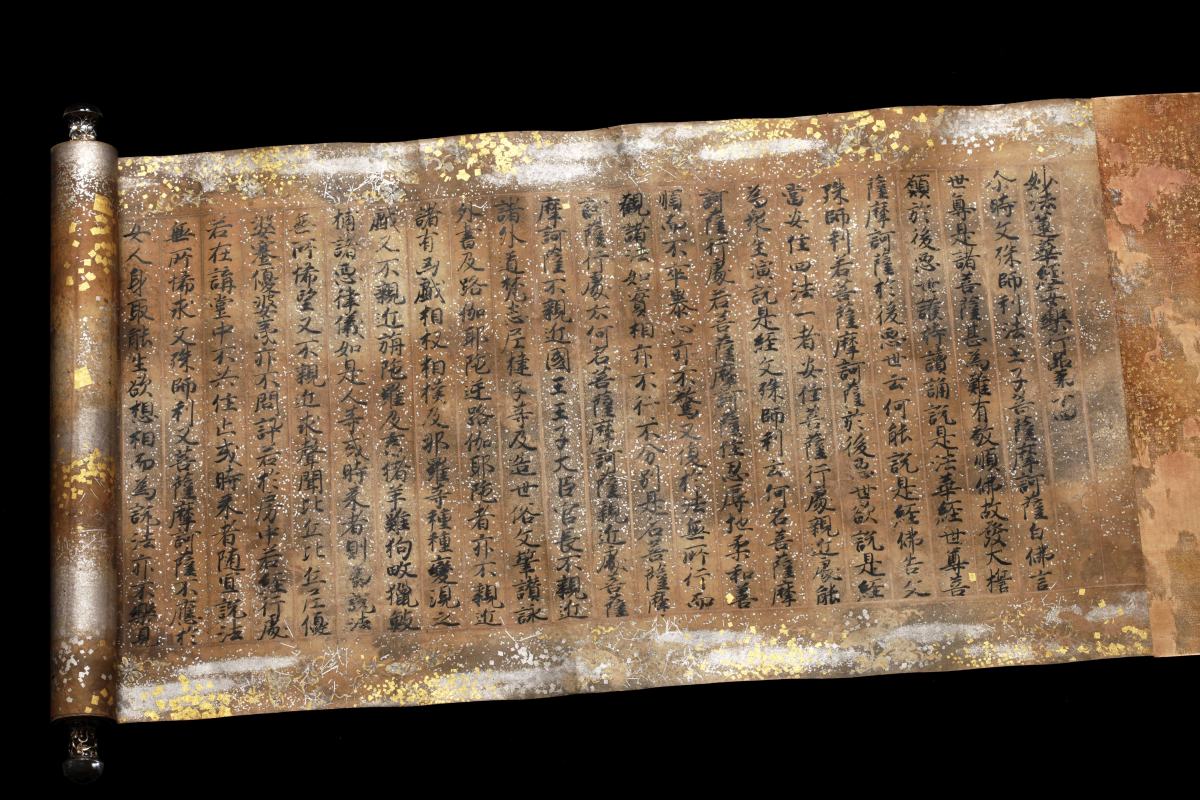 妙法蓮華經安樂行品第十四
尒時文殊師利法王子菩薩摩訶薩白佛言
世尊是諸菩薩甚為難有敬順佛故發大擔
願於後惡世護持讀誦說是法華經世尊菩
薩摩訶薩於後惡世云何能說是經佛告文
殊師利若菩薩摩訶薩於後惡世欲說是經
當安住四法一者安住菩薩行處親近處能
為衆生演說是經文殊師利云何名菩薩摩
訶薩行處若菩薩摩訶薩住忍辱地柔和善
順而不卒暴心亦不驚又復於法無所行而
觀諸法如實相亦不行不分別是名菩薩摩
訶薩行處云何名菩薩摩訶薩親近處菩薩
摩訶薩不親近國王王子大臣官長不親近
諸外道梵志尼揵子等及造世俗文筆讚詠
外書及路伽耶陀逆路伽耶陀者亦不親近
諸有㐫戲相扠相撲及那羅等種種變現之
戲又不親近旃陀羅及畜猪羊雞狗畋獵敷
捕諸惡律儀如是人等或時来者則為說法
無所悕望又不親近求聲聞比丘比丘尼優
婆塞優婆夷亦不問訊若於房中若經行處
若在講堂中不共住止或時来者随宜說法
無所悕求文殊師利又菩薩摩訶薩不應於
女人身取能生欲想相而為說法亦不樂見